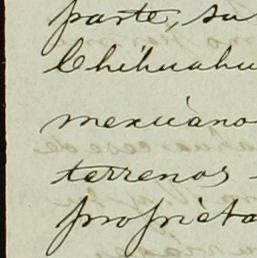 parte, su
Chihuahu
mexicano
terrenos -
propieta